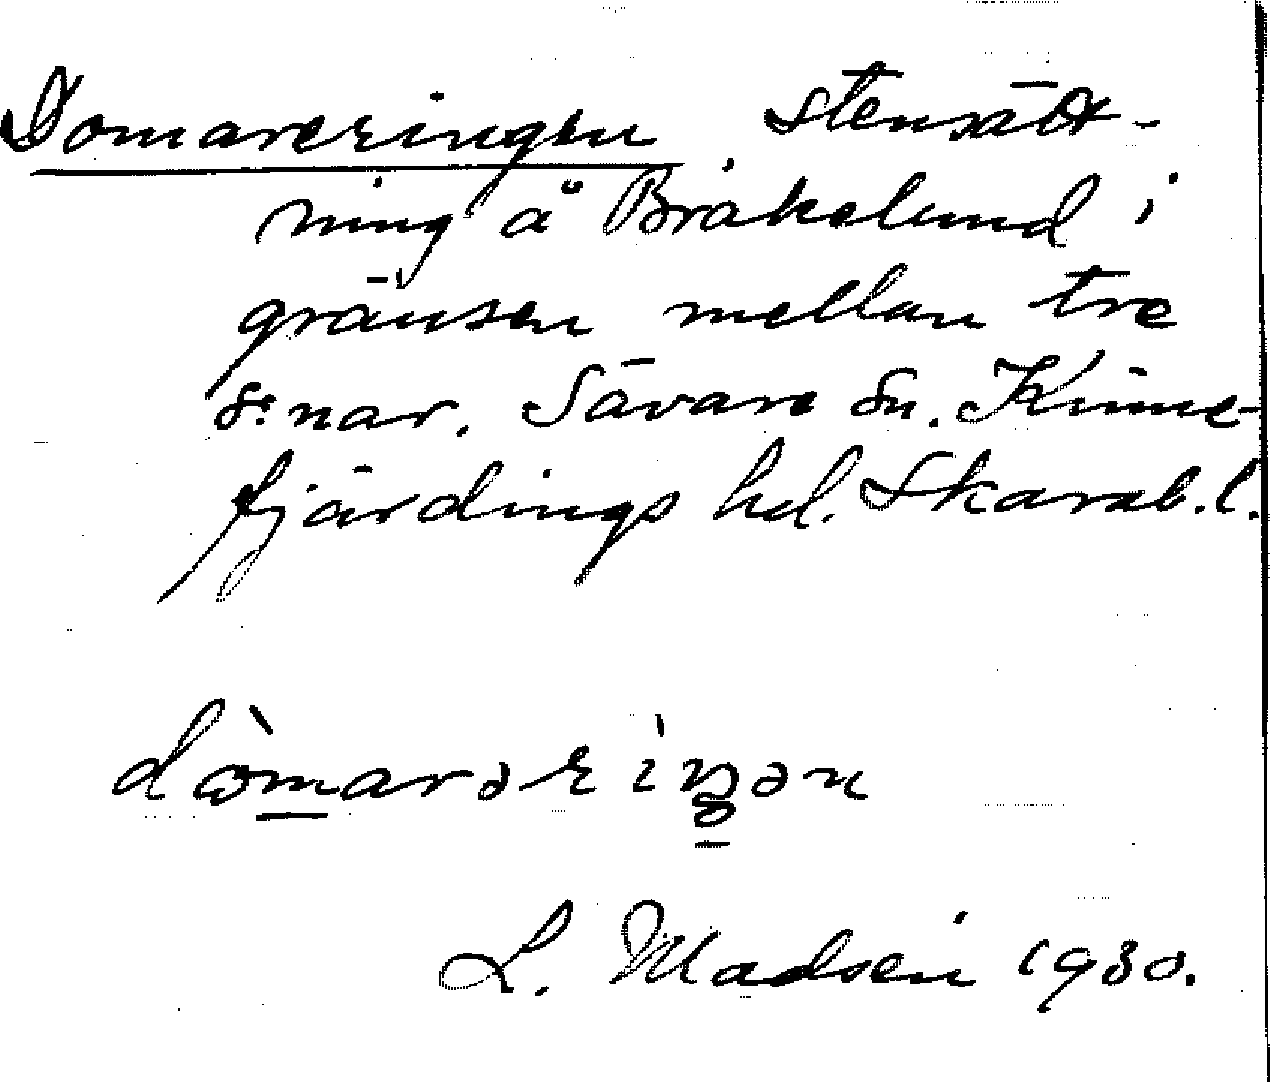 Domareringen, stensätt-
ning å Bråkelund i
gränsen mellan tre
s:nar. Sävare sn. Kinne-
fjärdings hd. Skarab. l.
L. Madsén 1930.